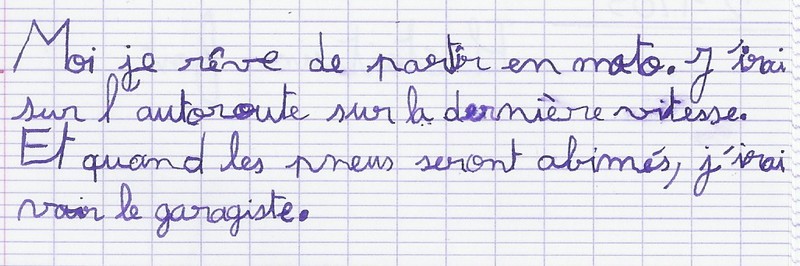 Moi je rêve de partir en moto. J'irai
sur l'autoroute sur la dernière vitesse.
Et quand les pneus seront abimés, j'irai
voir le garagiste.